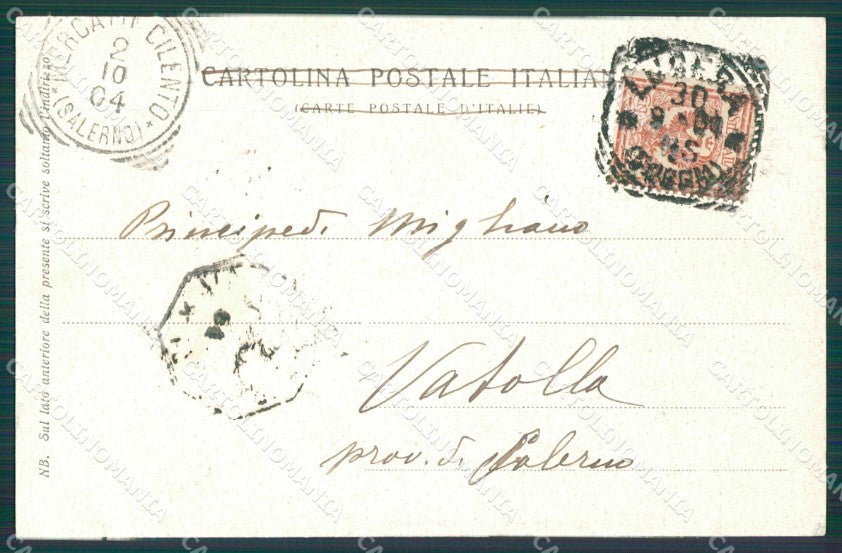 MERCATO CILENTO
2
10
04
(SALERNO)
CARTOLINA POSTALE ITALIAN
(CARTE POSTALE D'ITALIE)
LUCERA
30
9
04
(FOGGIA)
Principe di Migliano
Vatolla
prov. di Salerno
NB. Sul lato anteriore della presente si scrive soltanto l'indirizzo
CARTOLINOMANIA